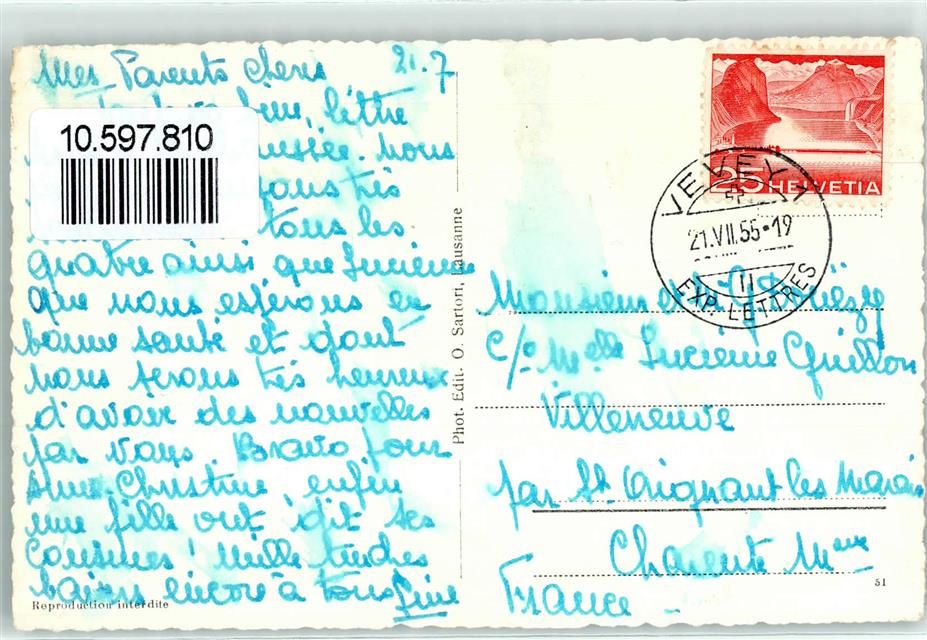 Mes Parents Chéris 21.7
bien, lettre
Nous
très
tous les
quatre ainsi que Lucienne
que nous espérons en
bonne santé et dont
nous serons très heureux
d'avoir des nouvelles
par vous. Bravo pour
Anne-Christine, enfin
une fille ont dit ses
Cousines! Mille tendres
baisers encore à tous
10.597.810
Reproduction interdite
Phot. Edit. O. Sartori, Lausanne
25 HELVETIA
VEVEY 1
21.VII.55-19
II
EXP. LETTRES
Monsieur et
c/o Melle Lucienne Guillon
Villeneuve
par St. Aignant les Marais
Charente Mme
France
51